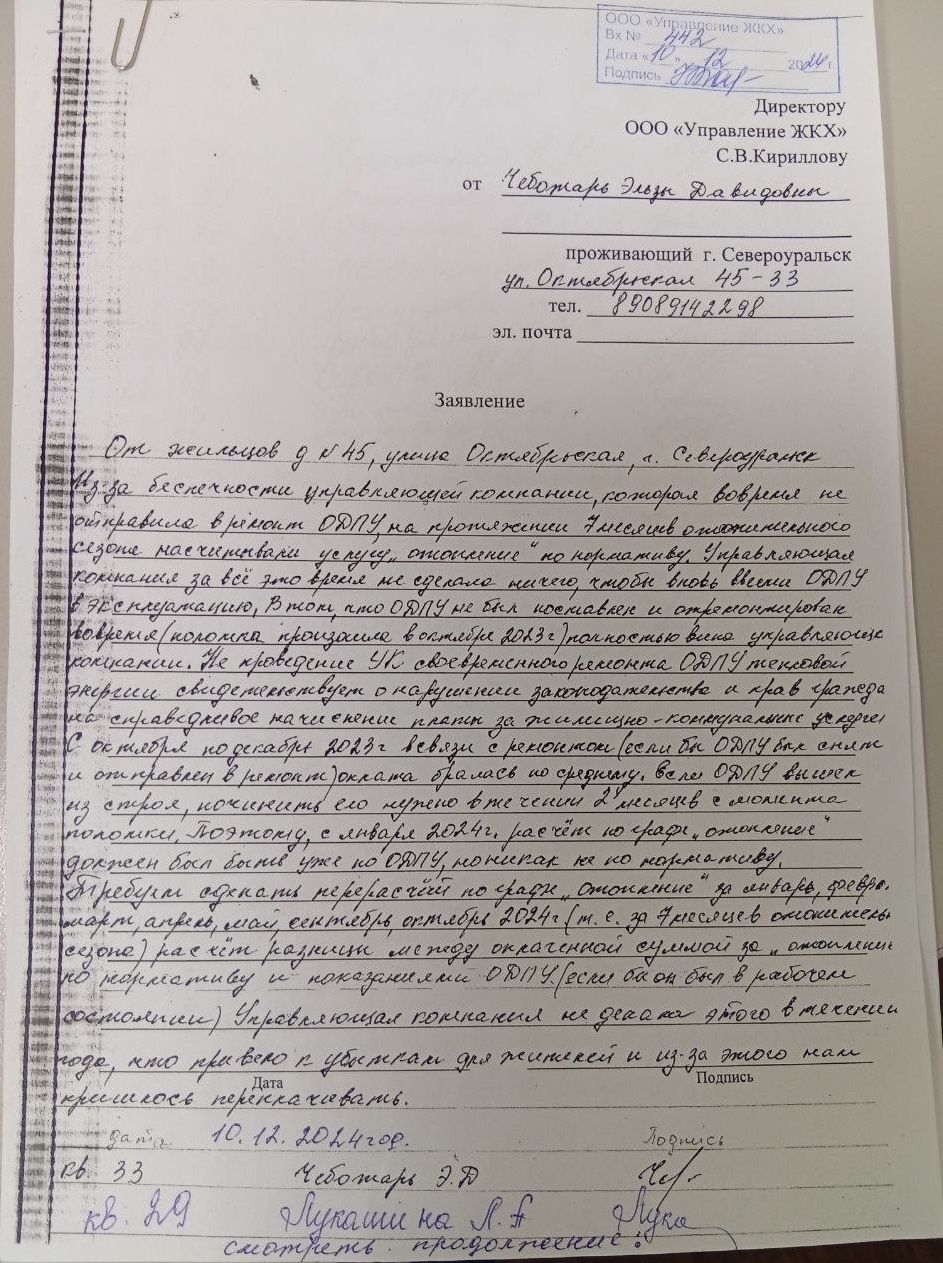 ООО «Управление ЖКХ»
Вх № 442
Дата «10» 12 2024 г.
Подпись
Директору
ООО «Управление ЖКХ»
С.В.Кириллову
от Чеботарь Эльзы Давидовны
проживающий г. Североуральск
ул. Октябрьская 45-33
тел. 89089142298
эл. почта
Заявление
От жильцов д №45, улица Октябрьская, г. Североуральск
Из-за беспечности управляющей компании, которая вовремя не
отправила в ремонт ОДПУ, на протяжении 7 месяцев отопительного
сезона насчитывали услугу „отопление" по нормативу. Управляющая
компания за всё это время не сделала ничего, чтобы вновь ввести ОДПУ
в эксплуатацию, В том, что ОДПУ не был поставлен и отремонтирован
вовремя (поломка произошла в октябре 2023г) полностью вина управляюще
компании. Не проведение УК своевременного ремонта ОДПУ тепловой
энергии свидетельствует о нарушении законодательства и прав гражда
на справедливое начисление платы за жилищно-коммунальные услуги
С октября по декабрь 2023г в связи с ремонтом (если бы ОДПУ был снят
и отправлен в ремонт) оплата бралась по среднему. Если ОДПУ вышел
из строя, починить его нужно в течении 2х месяцев с момента
поломки. Поэтому, с января 2024г. расчёт по графе „отопление"
должен был быть уже по ОДПУ, но никак не по нормативу.
Требуем сделать перерасчёт по графе „отопление" за январь, февра.
март, апрель, май, сентябрь, октябрь 2024г (т. е. за 7 месяцев отопитель
сезона) расчёт разницы между оплаченной суммой за „отоплени
по нормативу и показаниями ОДПУ. (если бы он был в рабочем
состоянии) Управляющая компания не делала этого в течении
года, что привело к убыткам для жителей и из-за этого нам
Дата Подпись
пришлось переплачивать.
дата 10.12.2024 год. Подпись
кв. 33 Чеботарь Э.Д Чеб
кв. 29 Лукашина Л.А Лука
смотреть продолжение: